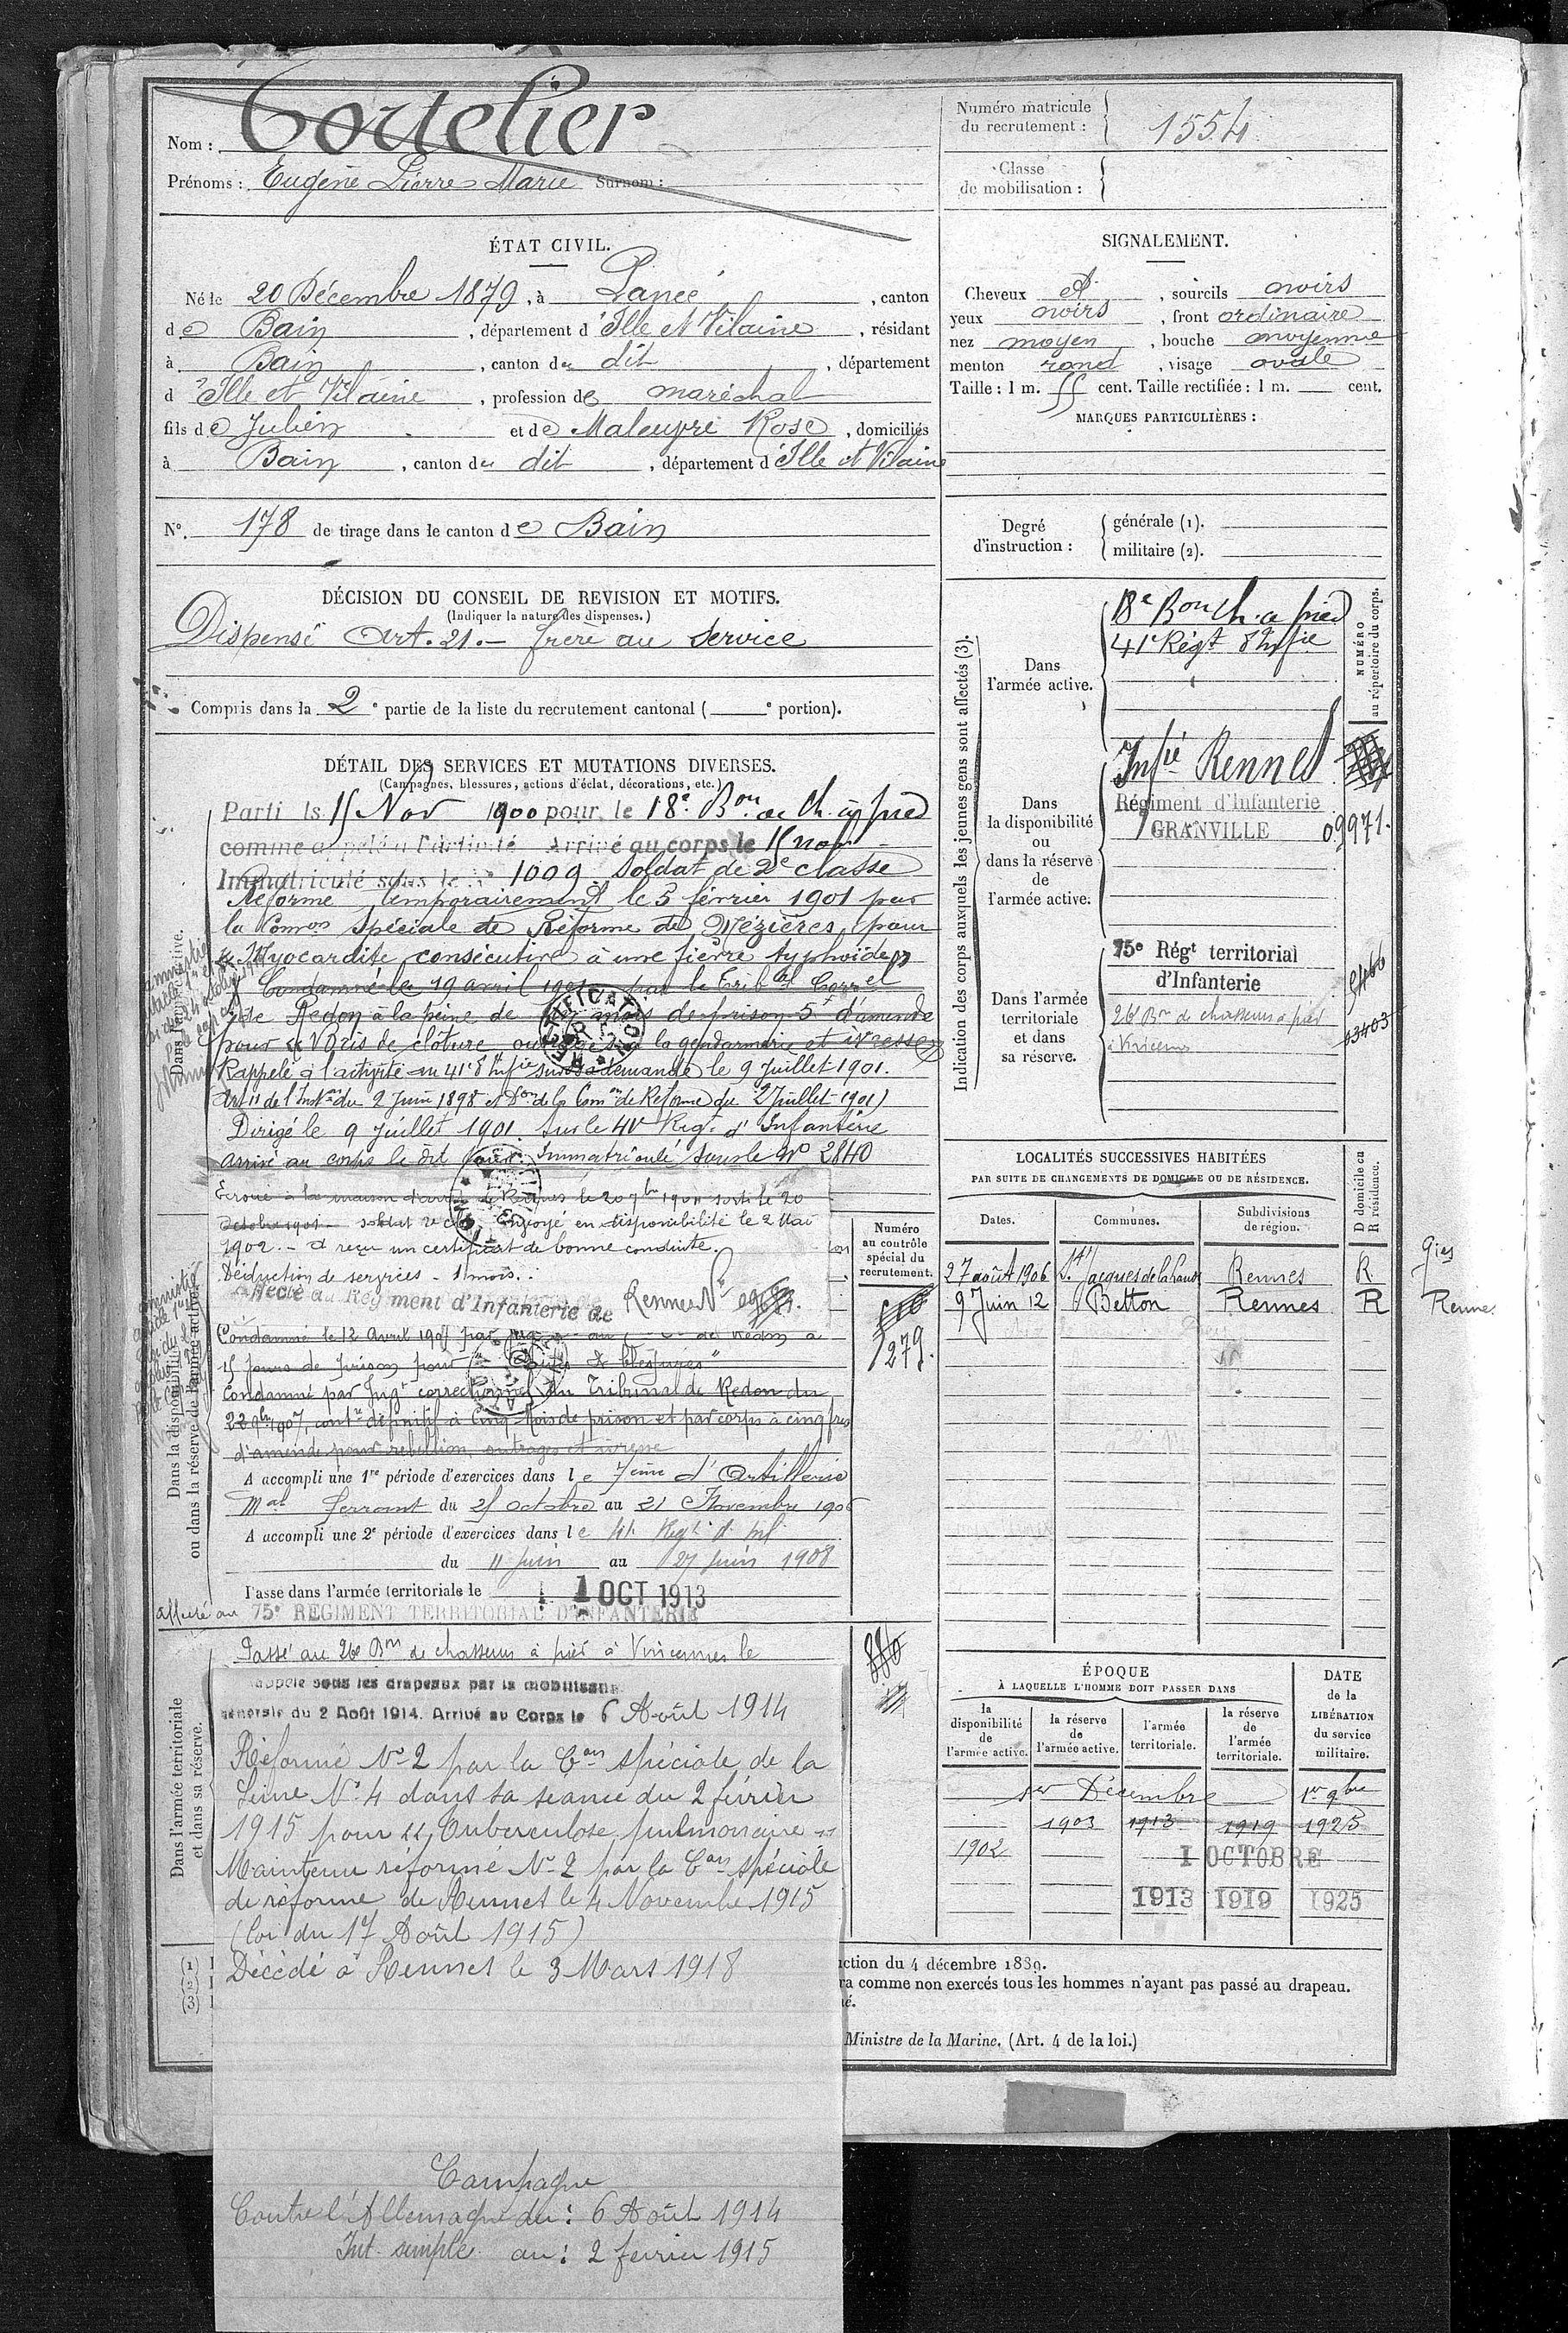 Nom : Cortelier
Prénoms : Eugène Pierre Marie Surnom :
Numéro matricule du recrutement : 1554
Classe de mobilisation :
ÉTAT CIVIL.
Né le 20 Décembre 1879, à Pancé, canton
de Bain, département d'Ille et Vilaine, résidant
à Bain, canton du dit, département
d'Ille et Vilaine, profession de maréchal
fils de Julien et de Maleupré Rose, domiciliés
à Bain, canton du dit, département d'Ille et Vilaine
N° 178 de tirage dans le canton de Bain
DÉCISION DU CONSEIL DE REVISION ET MOTIFS.
(Indiquer la nature des dispenses.)
Dispensé Art. 21. – frère au service
Compris dans la 2e partie de la liste du recrutement cantonal ( e portion).
DÉTAIL DES SERVICES ET MUTATIONS DIVERSES.
(Campagnes, blessures, actions d'éclat, décorations, etc.)
Parti le 15 Nov 1900 pour le 18e Bon de Ch. à pied
comme appelé à l'activité Arrivé au corps le 15 nov
Immatriculé sous le N° 1009 Soldat de 2e classe
Réformé temporairement le 5 février 1901 par
la Comon Spéciale de Réforme de Mézières, pour
"Myocardite consécutive à une fièvre typhoïde"
Condamné le 19 avril 1901 par le Tribal Correl
de Redon à la peine de mois de prison 5f d'amende
pour "Bris de clôture, outrages à la gendarmerie et ivresse"
Rappelé à l'activité au 41e d'Infie sur sa demande le 9 Juillet 1901.
Art 11 de l'Inston du 2 Juin 1898 et Don de la Comon de Réforme du 2 Juillet 1901)
Dirigé le 9 Juillet 1901 sur le 41e Régt d'Infanterie
arrivé au corps le dit jour. Immatriculé sous le N° 2840
Ecroué à la maison d'arrêt de Rennes le 20 7bre 1901 sorti le 20
Octobre 1901 – soldat 2e cl. Envoyé en disponibilité le 2 Mai
1902. – A reçu un certificat de bonne conduite.
Déduction de services – 1 mois.
Affecté au Régiment d'Infanterie de Rennes N°
Condamné le 12 Avril 1907 par jug de Redon à
15 jours de prison pour "Coups & blessures"
Condamné par Jugt correctionnel du Tribunal de Redon du
22 9bre 1907, contre définitif à Cinq Mois de prison et par corps à cinq frs
d'amende pour rebellion, outrages et ivresse
A accompli une 1re période d'exercices dans le 7ème d'Artillerie
Mal ferrant du 25 octobre au 21 Novembre 1906
A accompli une 2e période d'exercices dans le 41 Régt d'Inf
du 11 juin au 27 juin 1908
Passe dans l'armée territoriale le 1 OCT 1913
affecté au 75e REGIMENT TERRITORIAL D'INFANTERIE
Passé au 26e Bon de chasseurs à pied à Vincennes le
Rappelé sous les drapeaux par la mobilisation
générale du 2 Août 1914. Arrivé au Corps le 6 Août 1914
Réformé N° 2 par la Con spéciale de la
Seine N° 4 dans sa séance du 2 février
1915 pour "Tuberculose pulmonaire"
Maintenu réformé N° 2 par la Con spéciale
de réforme de Rennes le 4 Novembre 1915
(loi du 17 Août 1915)
Décédé à Rennes le 3 Mars 1918
Campagne
Contre l'Allemagne du : 6 Août 1914
Int. simple au : 2 février 1915
Dans l'armée active.
Dans la disponibilité
ou dans la réserve de l'armée active.
Dans l'armée territoriale
et dans sa réserve.
(1)
(2)
(3)
Numéro
au contrôle
spécial du
recrutement.
1279.
SIGNALEMENT.
Cheveux et, sourcils noirs
yeux noirs, front ordinaire
nez moyen, bouche moyenne
menton rond, visage ovale
Taille : 1 m. 55 cent. Taille rectifiée : 1 m. cent.
MARQUES PARTICULIÈRES :
Degré d'instruction :
générale (1).
militaire (2).
Indication des corps auxquels les jeunes gens sont affectés (3).
NUMÉRO
au répertoire du corps.
Dans
l'armée active.
18e Bon Ch. à pied
41e Régt d'Infie
Dans
la disponibilité
ou
dans la réserve
de
l'armée active.
Infie Rennes
Régiment d'Infanterie
GRANVILLE 09971.
Dans l'armée
territoriale
et dans
sa réserve.
75e Régt territorial
d'Infanterie
26e Bon de chasseurs à pied
à Vincennes
13403
LOCALITÉS SUCCESSIVES HABITÉES
PAR SUITE DE CHANGEMENTS DE DOMICILE OU DE RÉSIDENCE.
D domicile ou
R résidence.
Dates. Communes. Subdivisions de région.
27 août 1906 St Jacques de la Lande Rennes R
9 Juin 12 Betton Rennes R
Rennes
ÉPOQUE
À LAQUELLE L'HOMME DOIT PASSER DANS
DATE
de la
LIBÉRATION
du service
militaire.
la disponibilité de l'armée active.
la réserve de l'armée active.
l'armée territoriale.
la réserve de l'armée territoriale.
1er Décembre 1er 9bre
1903 1913 1919 1925
1902
1 OCTOBRE
1913 1919 1925
ction du 4 décembre 1889.
ra comme non exercés tous les hommes n'ayant pas passé au drapeau.
né.
Ministre de la Marine. (Art. 4 de la loi.)